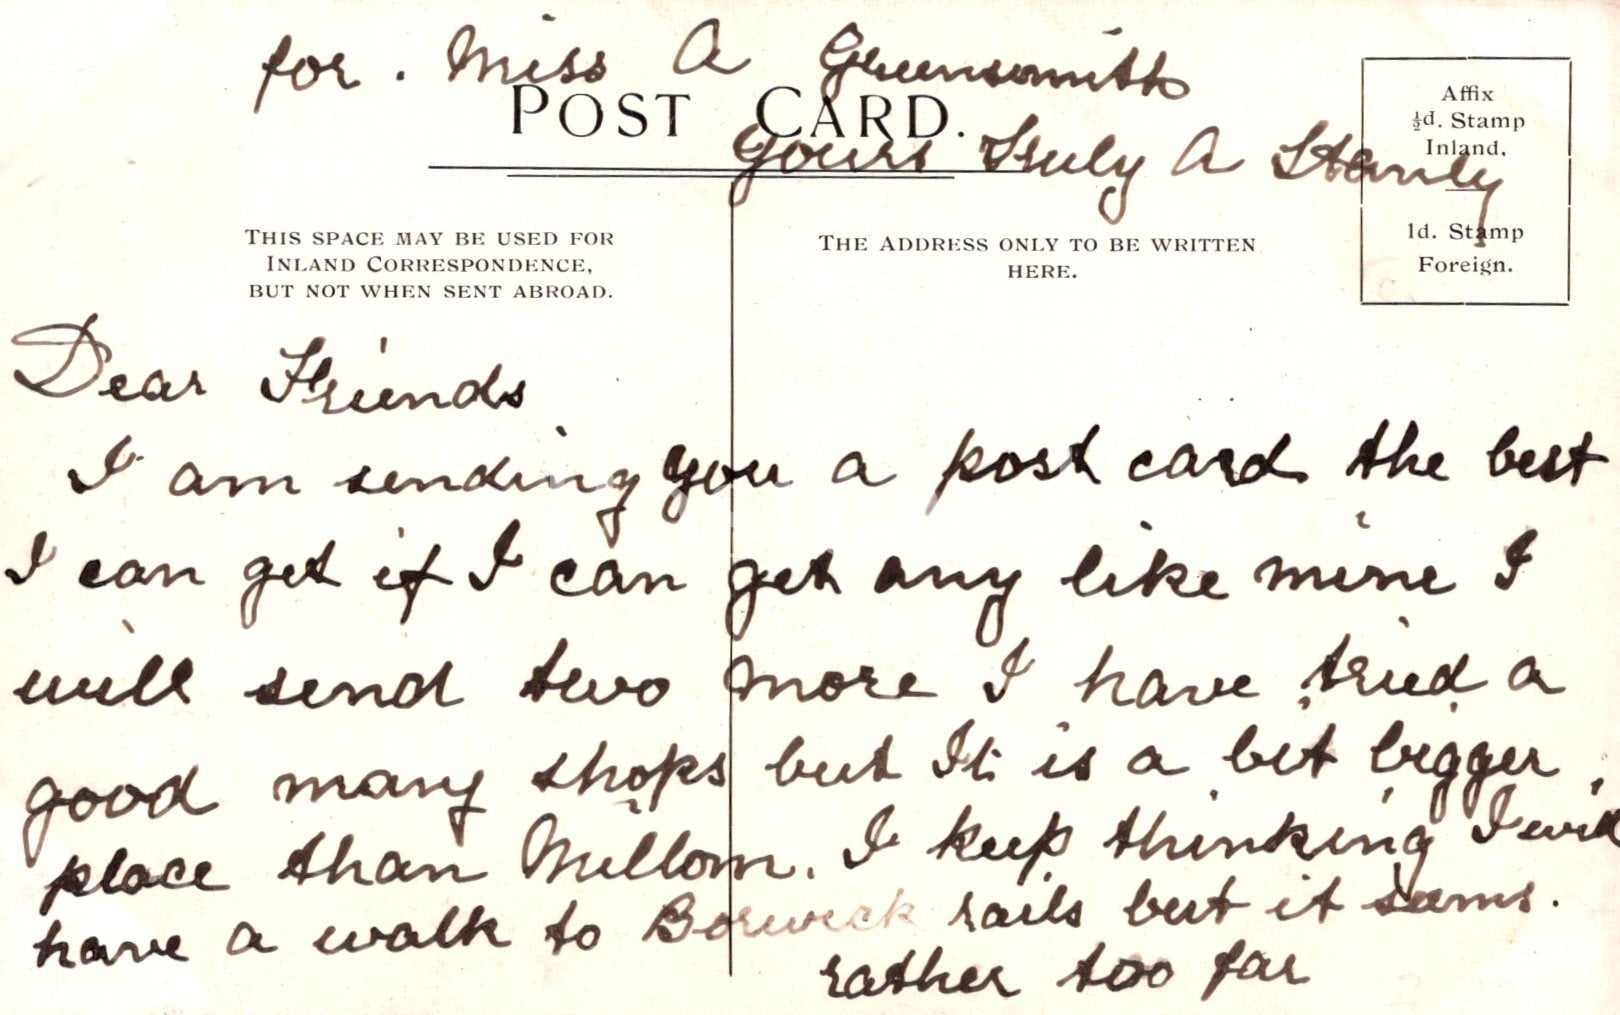 for. Miss A Greensmith
POST CARD.
Yours Truly A Stanly
Affix
½d. Stamp
Inland.
1d. Stamp
Foreign.
THIS SPACE MAY BE USED FOR
INLAND CORRESPONDENCE,
BUT NOT WHEN SENT ABROAD.
THE ADDRESS ONLY TO BE WRITTEN
HERE.
Dear Friends
I am sending you a post card the best
I can get if I can get any like mine I
will send two more I have tried a
good many shops but It is a bit bigger
place than Millom. I keep thinking I will
have a walk to Borwick rails but it seams.
rather too far